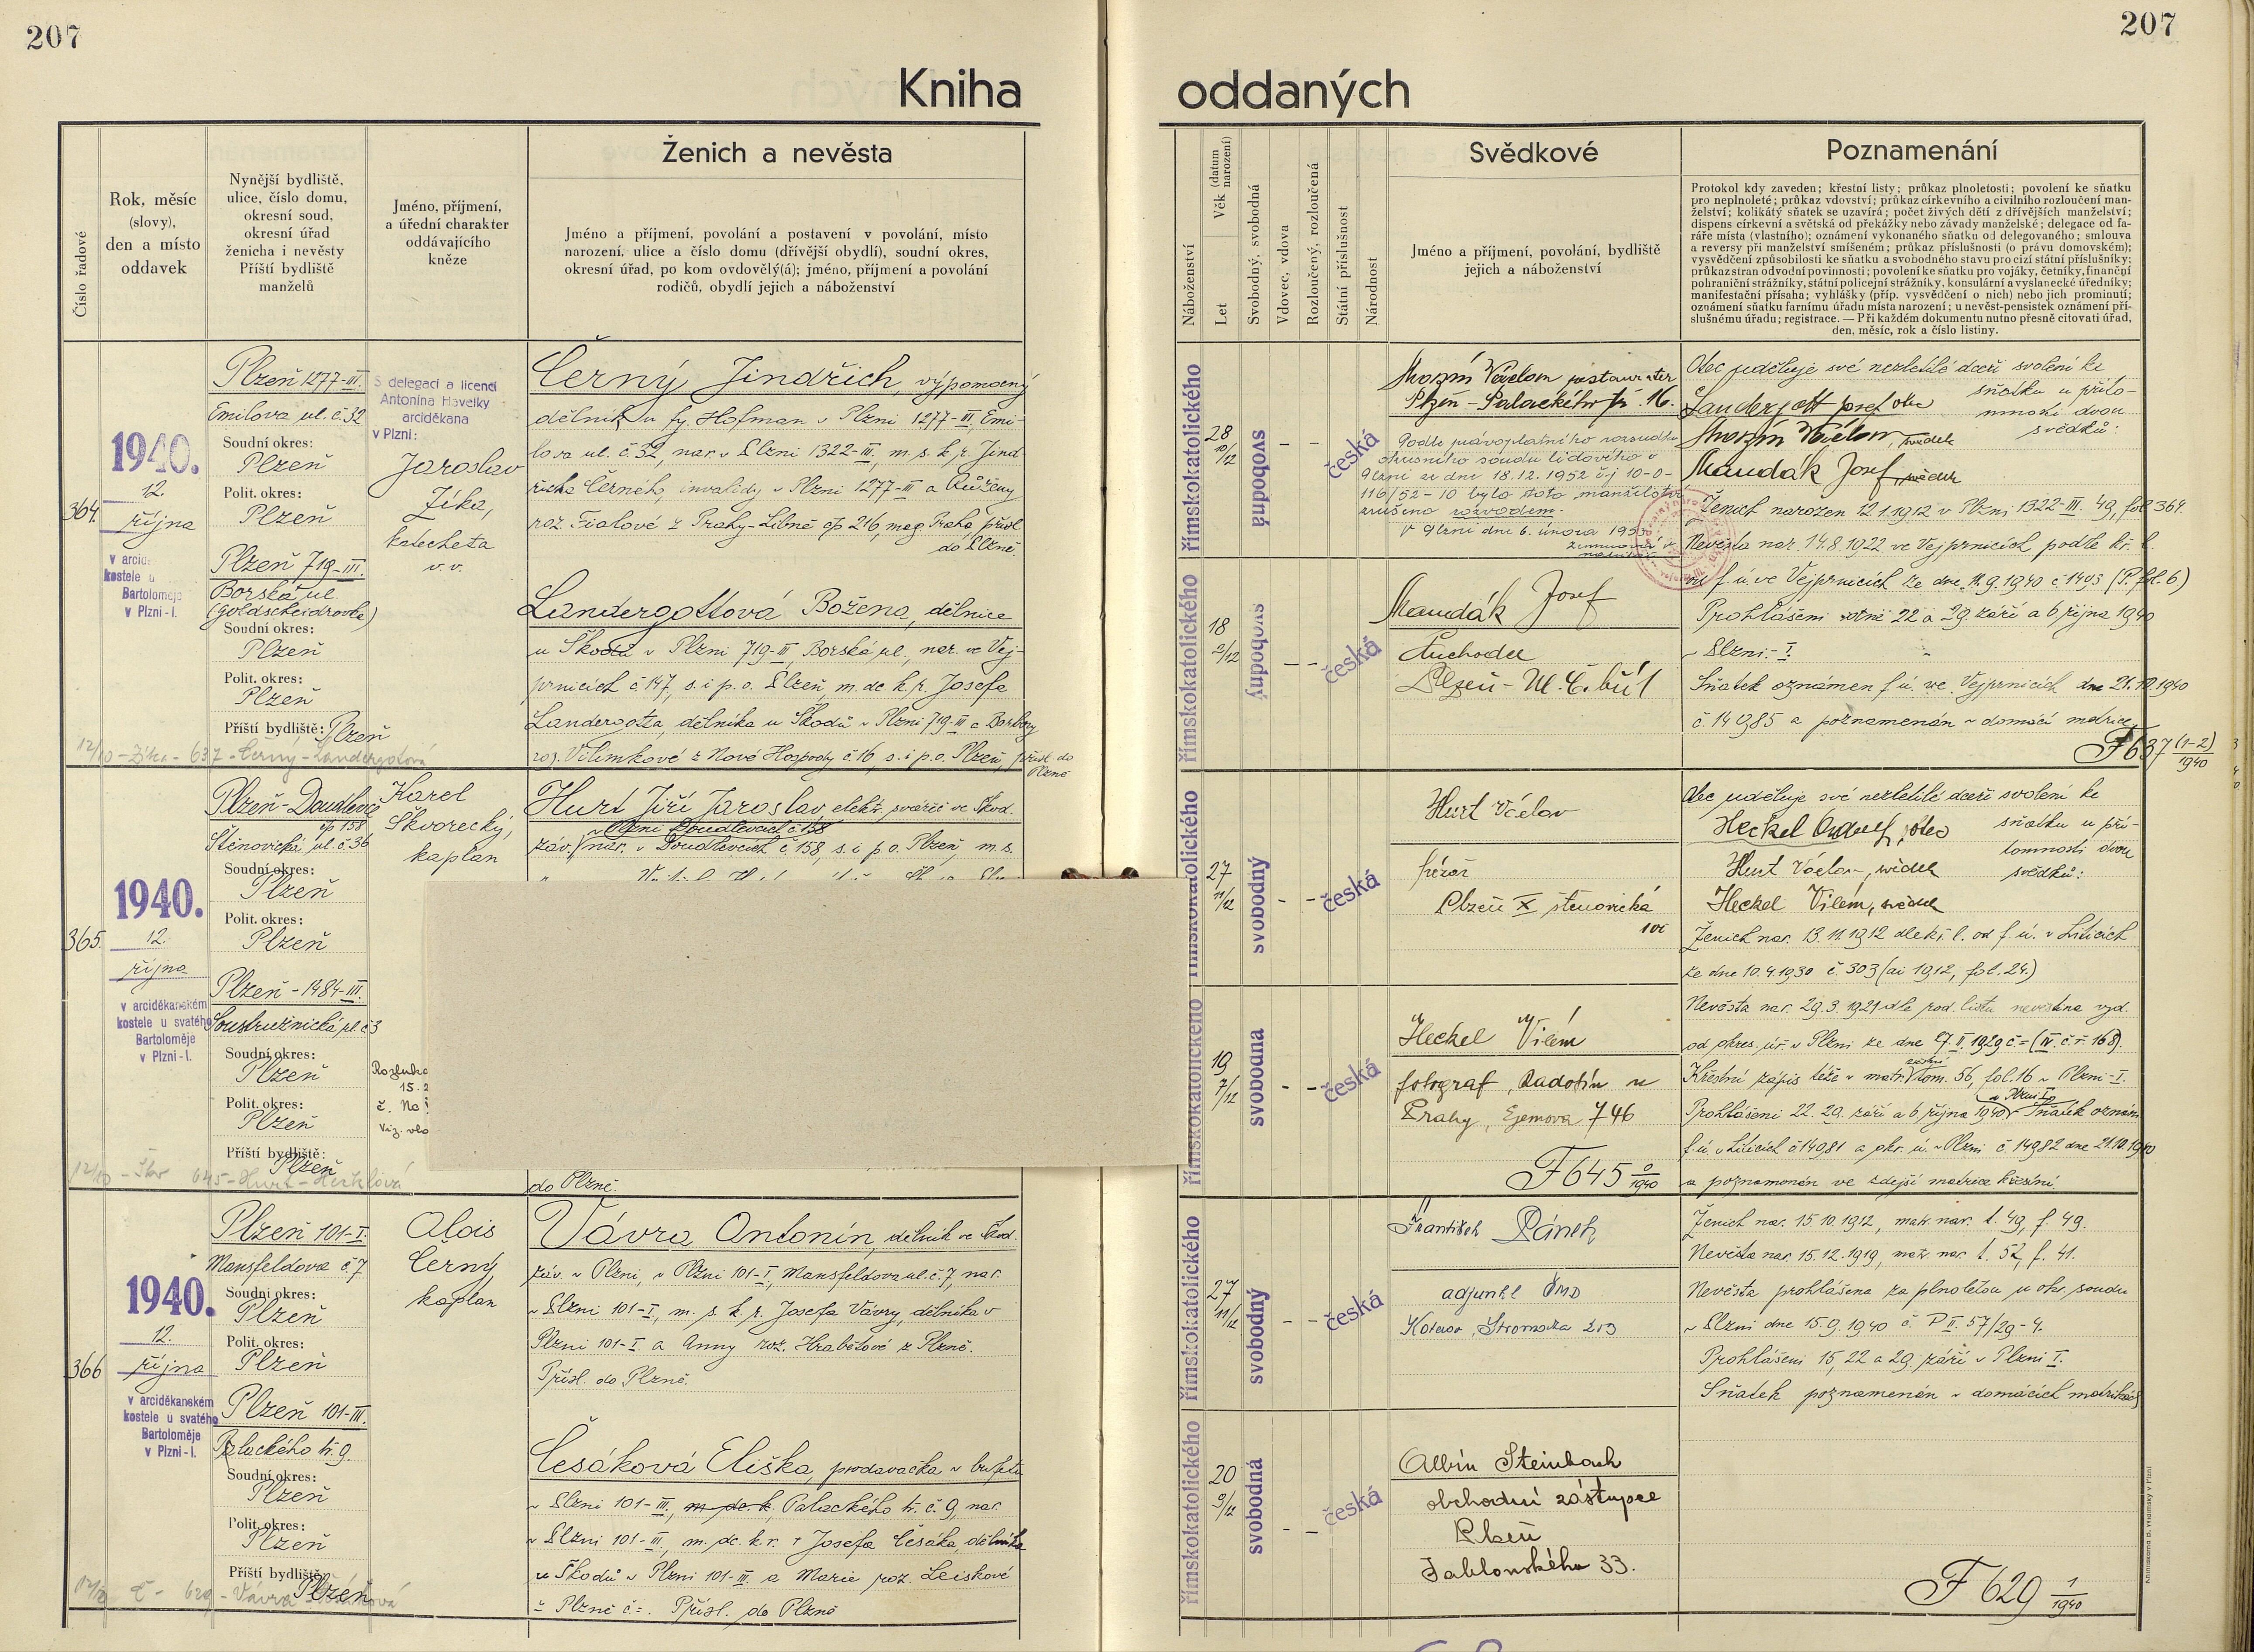 207
207
Kniha
oddaných
Číslo řadové
Rok, měsíc
(slovy),
den a místo
oddavek
Nynější bydliště,
ulice, číslo domu,
okresní soud,
okresní úřad
ženicha i nevěsty
Příští bydliště
manželů
Jméno, příjmení,
a úřední charakter
oddávajícího
kněze
Ženich a nevěsta
Jméno a příjmení, povolání a postavení v povolání, místo
narození, ulice a číslo domu (dřívější obydlí), soudní okres,
okresní úřad, po kom ovdovělý(á); jméno, příjmení a povolání
rodičů, obydlí jejich a náboženství
Náboženství
Věk (datum narození)
Let
Svobodný, svobodná
Vdovec, vdova
Rozloučený, rozloučená
Státní příslušnost
Národnost
Svědkové
Jméno a příjmení, povolání, bydliště
jejich a náboženství
Poznamenání
Protokol kdy zaveden; křestní listy; průkaz plnoletosti; povolení ke sňatku
pro neplnoleté; průkaz vdovství; průkaz církevního a civilního rozloučení man-
želství; kolikátý sňatek se uzavírá; počet živých dětí z dřívějších manželství;
dispens církevní a světská od překážky nebo závady manželské; delegace od fa-
ráře místa (vlastního); oznámení vykonaného sňatku od delegovaného; smlouva
a reversy při manželství smíšeném; průkaz příslušnosti (o právu domovském);
vysvědčení způsobilosti ke sňatku a svobodného stavu pro cizí státní příslušníky;
průkaz stran odvodní povinnosti; povolení ke sňatku pro vojáky, četníky, finanční
pohraniční strážníky, státní policejní strážníky, konsulární a vyslanecké úředníky;
manifestační přísaha; vyhlášky (příp. vysvědčení o nich) nebo jich prominutí;
oznámení sňatku farnímu úřadu místa narození; u nevěst-pensistek oznámení pří-
slušnému úřadu; registrace. — Při každém dokumentu nutno přesně citovati úřad,
den, měsíc, rok a číslo listiny.
364.
1940.
12.
října
v arcid
kostele u
Bartoloměje
v Plzni-I.
Plzeň 1277-III.
Emilova ul. č. 32
Soudní okres:
Plzeň
Polit. okres:
Plzeň
Plzeň 719-III.
Borská ul.
(Goldscheidrovka)
Soudní okres:
Plzeň
Polit. okres:
Plzeň
Příští bydliště: Plzeň
12/10 - Zíka - 637 - Černý - Landergotová
S delegací a licencí
Antonína Havelky
arciděkana
v Plzni:
Jaroslav
Zíka,
katecheta
v. v.
Černý Jindřich, výpomocný
dělník u fy. Hofman v Plzni 1277-III, Emi-
lova ul. č. 32, nar. v Plzni 1322-III, m. s. k. r. Jind-
řicha Černého, invalidy v Plzni 1277-III a Růženy
roz. Fialové z Prahy-Libně čp 216, mag. Praha, přísl.
do Plzně.
Landergottová Božena, dělnice
u Škodů v Plzni 719-III, Borská ul., nar. ve Vej-
prnicích č. 147, s. i p. o. Plzeň, m. dc. k. r. Josefa
Landergotta, dělníka u Škodů v Plzni 719-III a Barbory
roz. Vilímkové z Nové Hospody č. 16, s. i p. o. Plzeň, přísl. do
Plzně
římskokatolického
28
10/12
svobodný
–
–
česká
římskokatolického
18
2/12
svobodná
–
–
česká
Václav restauratér
Plzeň - Palackého tř. 16.
Podle právoplatného rozsudku
okresního soudu lidového v
Plzni ze dne 18.12.1952 čj 10-0-
116/52-10 bylo toto manželství
zrušeno rozvodem.
V Plzni dne 6. února 1953
Mandák Josef
Plzeň
Otec uděluje své nezletilé dceři svolení ke
sňatku u příto-
mnosti dvou
svědků:
Landergott Josef otec
Václav, svědek
Mandák Josef, svědek
Ženich narozen 12.1.1912 v Plzni 1322-III. 49, fol. 364.
Nevěsta nar. 14.8.1922 ve Vejprnicích podle kř. l.
od f. ú. ve Vejprnicích ze dne 11.9.1940 č. 1405 (P. fol. 6)
Prohlášeni 22 a 29. září a 6 října 1940
v Plzni-I.
Sňatek oznámen f. ú. ve Vejprnicích dne 21.10.1940
č. 14985 a poznamenán v domácí matrice.
F 637 (1-2)/1940
365.
1940.
12.
října
v arciděkanském
kostele u svatého
Bartoloměje
v Plzni-I.
Plzeň-Doudlevce
čp 158
Štěnovická ul. č. 36
Soudní okres:
Plzeň
Polit. okres:
Plzeň
Plzeň - 1484-III.
Soustružnická ul. č 3
Soudní okres:
Plzeň
Polit. okres:
Plzeň
Příští bydliště:
Plzeň
12/10 - Škv 645 - Hurt - Hecklová
Karel
Škvorecký,
kaplan
15.
č.
Viz. vlo
Hurt Jiří Jaroslav elektr. svářeč ve Škod.
v Plzni Doudlevcích č 158
záv. nar. v Doudlevcích č. 158, s. i p. o. Plzeň, m. s.
do Plzně.
římskokatolického
27
11/12
svobodný
–
–
česká
římskokatolického
19
7/12
svobodná
–
–
česká
Hurt Václav
frézař
Plzeň X štěnovická
101
Heckel Vilém
fotograf, Radotín u
Prahy, Ejemova 746
F 645 0/1940
Otec uděluje své nezletilé dceři svolení ke
sňatku u pří-
tomnosti dvou
svědků:
Heckel Adolf, otec
Hurt Václav, svědek
Heckel Vilém, svědek
Ženich nar. 13.11.1912 dle kř. l. od f. ú. v Liticích
ze dne 10.4.1930 č. 303 (ai 1912, fol. 24.)
Nevěsta nar. 29.3.1921 dle rod. listu nevěstina vyd.
od okres. úř. v Plzni ze dne 27.II.1929 č = (IV. č. ř. 168).
Křestní zápis téže v matr. tom. 56, fol. 16 v Plzni-I.
v Plzni I.
Prohlášeni 22. 29. září a 6 října 1940 Sňatek oznám.
f. ú. v Liticích č 14981 a okr. ú. v Plzni č. 14982 dne 21.10.1940
a poznamenán ve zdejší matrice křestní.
366
1940.
12.
října
v arciděkanském
kostele u svatého
Bartoloměje
v Plzni-I.
Plzeň 101-I.
Mansfeldova č. 7
Soudní okres:
Plzeň
Polit. okres:
Plzeň
Plzeň 101-III.
Palackého tř. 9.
Soudní okres:
Plzeň
Polit. okres:
Plzeň
Příští bydliště:
Plzeň
12/10 Č - 629 - Vávra - Česáková
Alois
Černý,
kaplan
Vávra Antonín, dělník ve Škod.
záv. v Plzni, v Plzni 101-I, Mansfeldova ul. č. 7, nar.
v Plzni 101-I, m. s. k. r. Josefa Vávry, dělníka v
Plzni 101-I. a Anny roz. Hrabětové z Plzně.
Přísl. do Plzně.
Česáková Eliška, prodavačka v bufetu
v Plzni 101-III, m. dc. k. Palackého tř. č 9, nar.
v Plzni 101-III, m. dc. k. r. † Josefa Česáka, dělníka
ve Škodů v Plzni 101-III. a Marie roz. Leiskové
z Plzně č =. Přísl. do Plzně
římskokatolického
27
11/12
svobodný
–
–
česká
římskokatolického
20
9/12
svobodná
–
–
česká
František Pánek
adjunkt ČMD
Koterov, Stromovka 213
Albín Steinbach
obchodní zástupce
Plzeň
Jablonského 33.
Ženich nar. 15.10.1912, matr. nar. t. 49, f. 49.
Nevěsta nar. 15.12.1919, matr. nar. t. 52, f. 41.
Nevěsta prohlášena za plnoletou u okr. soudu
v Plzni dne 15.9.1940 č. P II. 57/29-4.
Prohlášeni 15, 22 a 29. září v Plzni I.
Sňatek poznamenán v domácích matrikách
F 629 1/1940